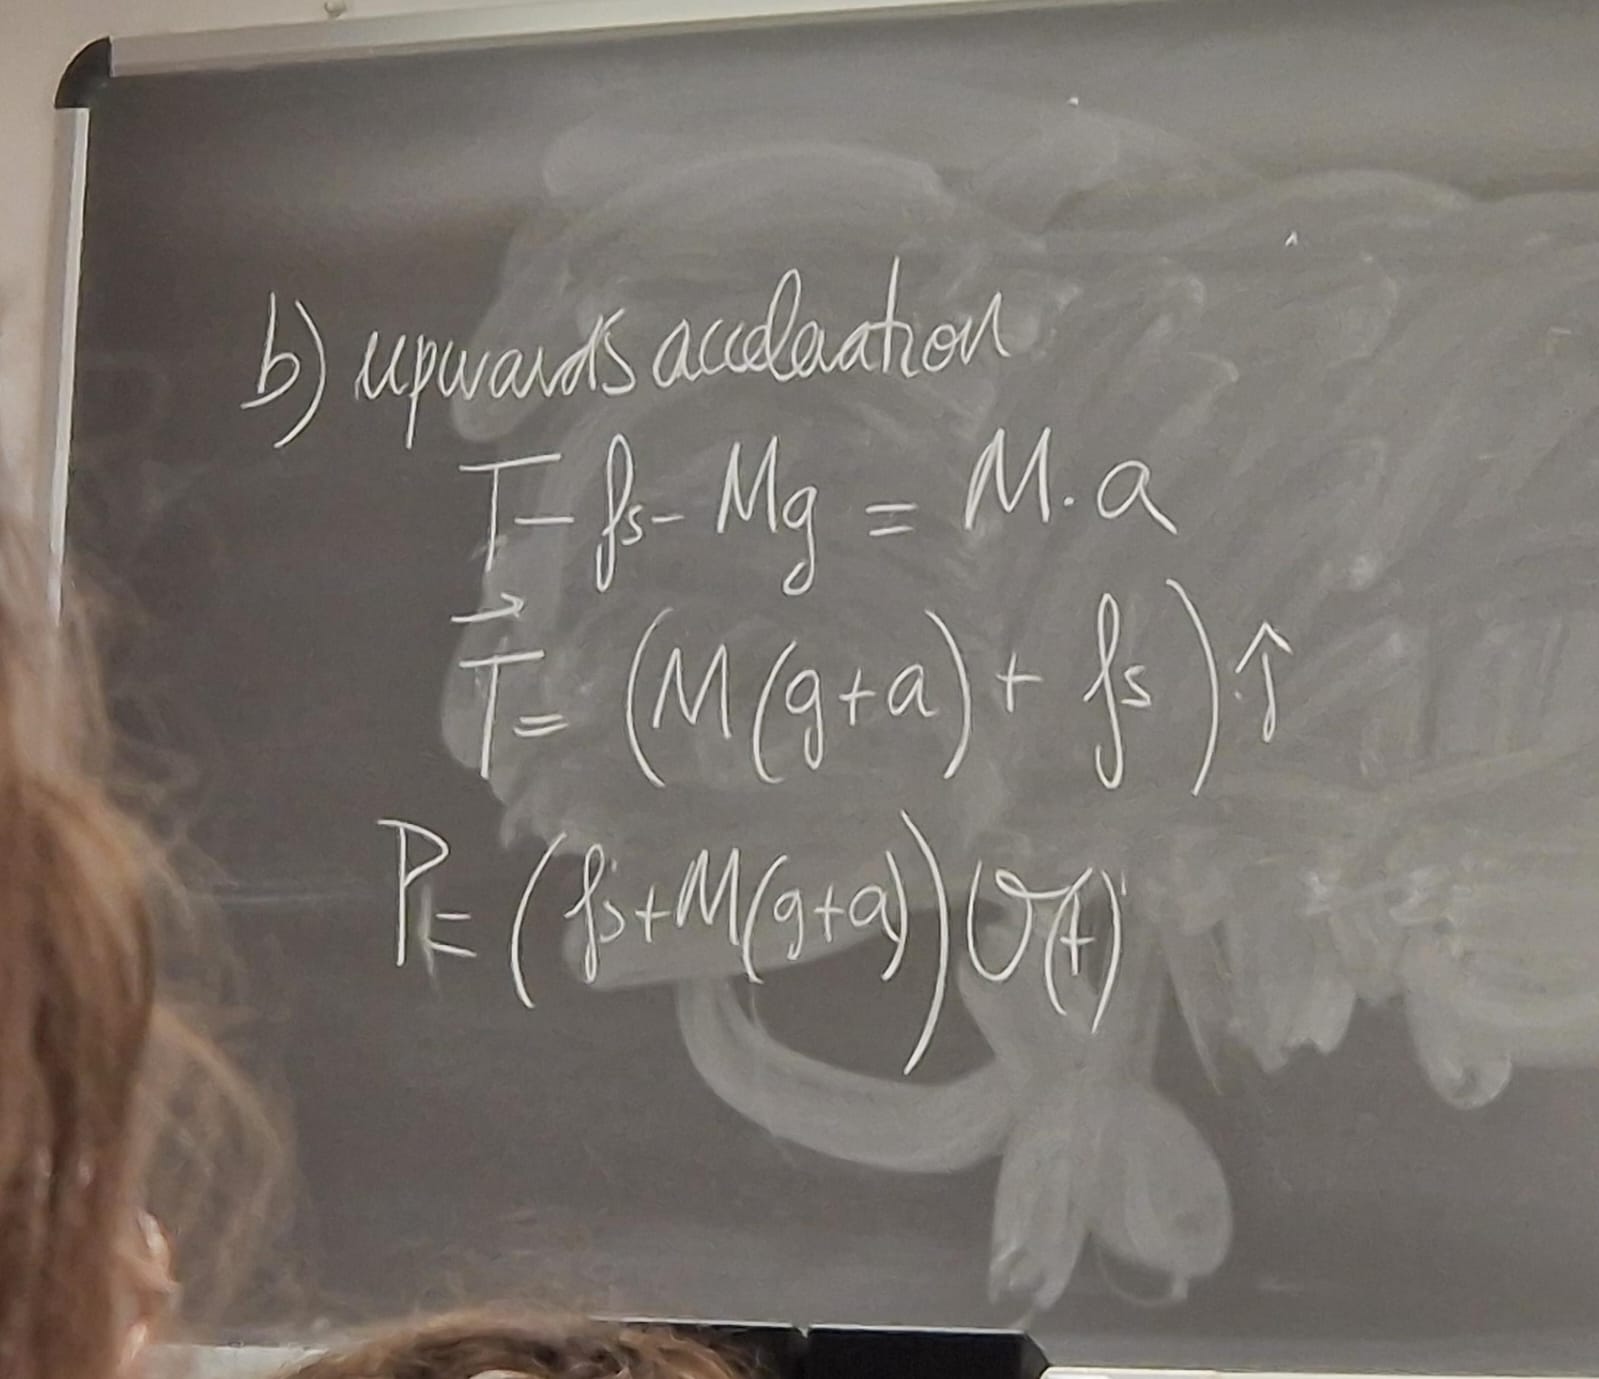 b) upwards acceleration
T - fs - Mg = M · a
T⃗ = (M(g+a) + fs) ĵ
P = (fs + M(g+a)) v(t)